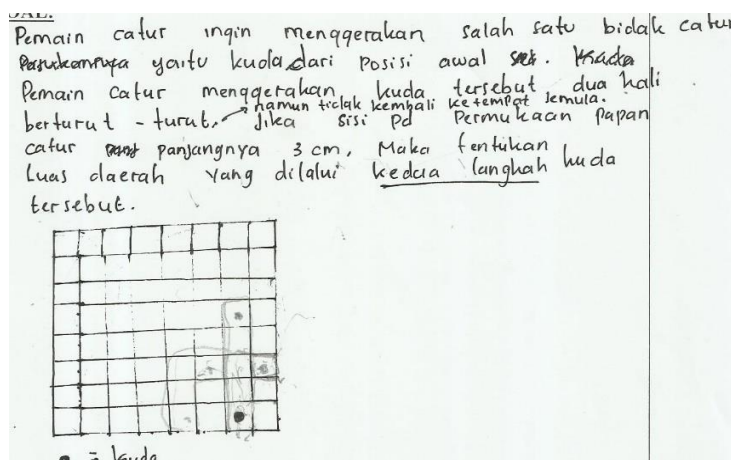 SOAL:
Pemain catur ingin menggerakan salah satu bidak catur
yaitu kuda dari posisi awal.
Pemain catur menggerakan kuda tersebut dua kali
namun tidak kembali ketempat semula.
berturut - turut, Jika sisi pd Permukaan papan
catur panjangnya 3 cm, Maka tentukan
Luas daerah yang dilalui kedua langkah kuda
tersebut.
= kuda